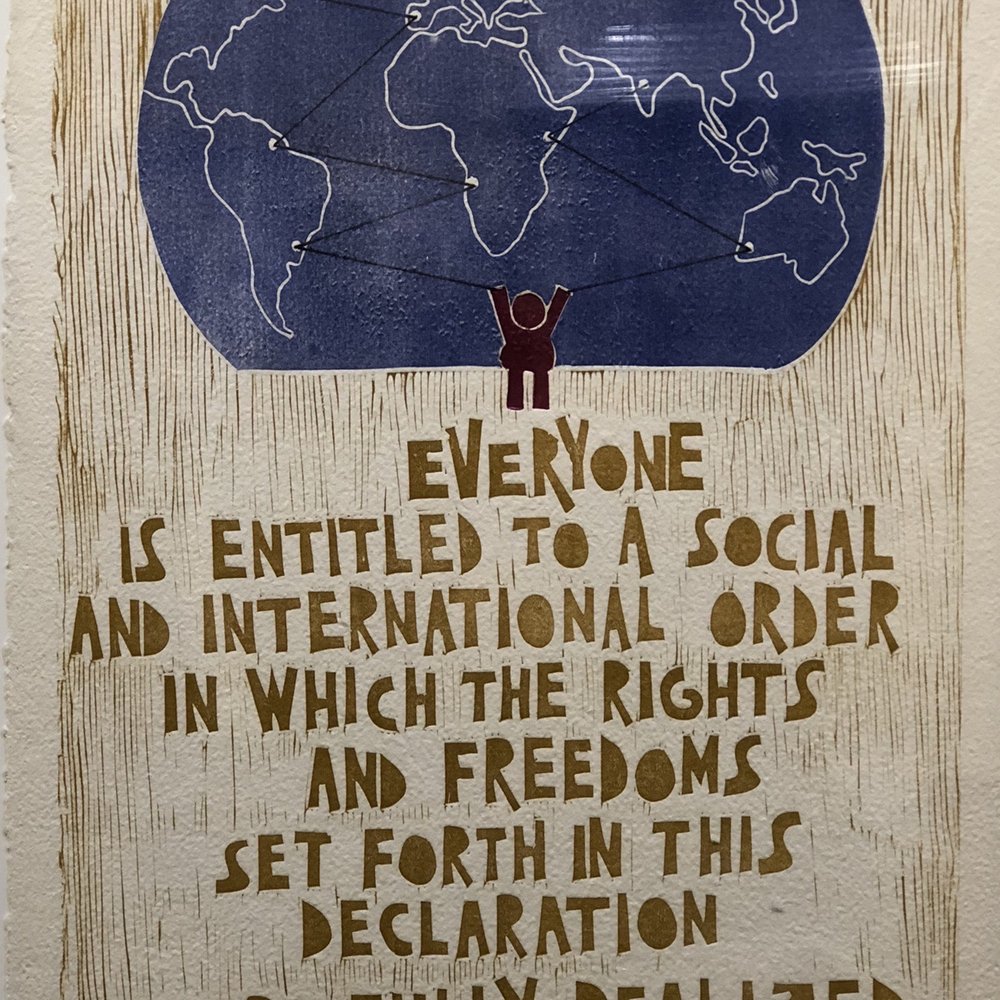 EVERYONE
IS ENTITLED TO A SOCIAL
AND INTERNATIONAL ORDER
IN WHICH THE RIGHTS
AND FREEDOMS
SET FORTH IN THIS
DECLARATION
FULLY REALIZED